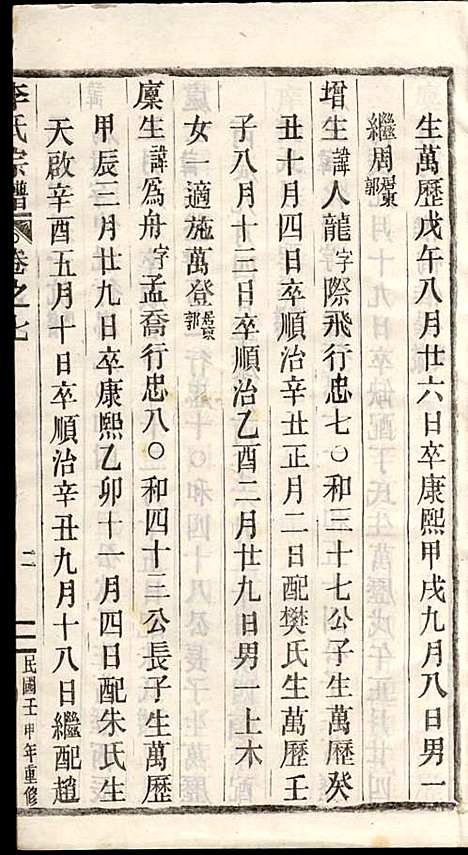 生萬歷戊午八月廿六日卒康熙甲戌九月八日男一
繼周居東郭
增生諱人龍字際飛行忠七〇和三十七公子生萬歷癸
丑十月四日卒順治辛丑正月二日配樊氏生萬歷壬
子八月十三日卒順治乙酉二月廿九日男一上木
女一適施萬登居東郭
廩生諱為舟字孟喬行忠八〇和四十三公長子生萬歷
甲辰三月廿九日卒康熙乙卯十一月四日配朱氏生
天啟辛酉五月十日卒順治辛丑九月十八日繼配趙
李氏宗譜 卷之七 二 民國壬申年重修